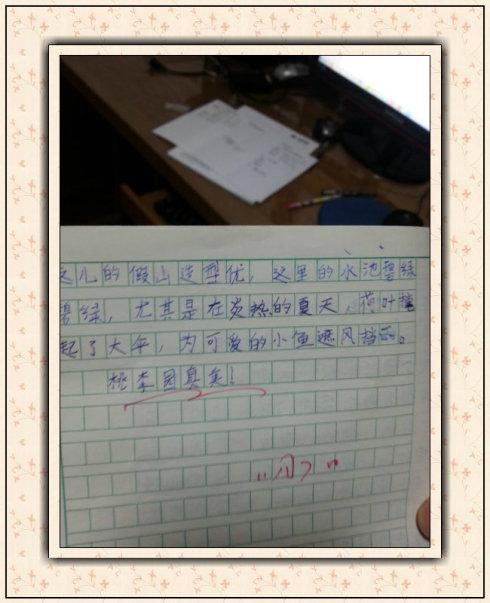 这儿的假山造型优,这里的水池碧绿
碧绿,尤其是在炎热的夏天,荷叶撑
起了大伞,为可爱的小鱼遮风挡雨。
桃李园真美!